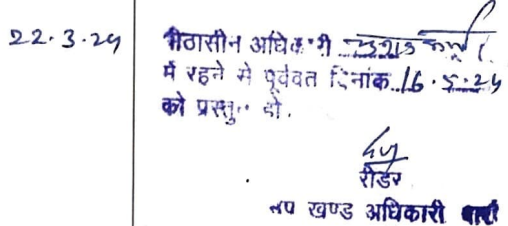 22.3.24 पीठासीन अधिकारी
में रहने से पूर्ववत दिनांक 16.5.24
को प्रस्तुत हो.
रीडर
उप खण्ड अधिकारी